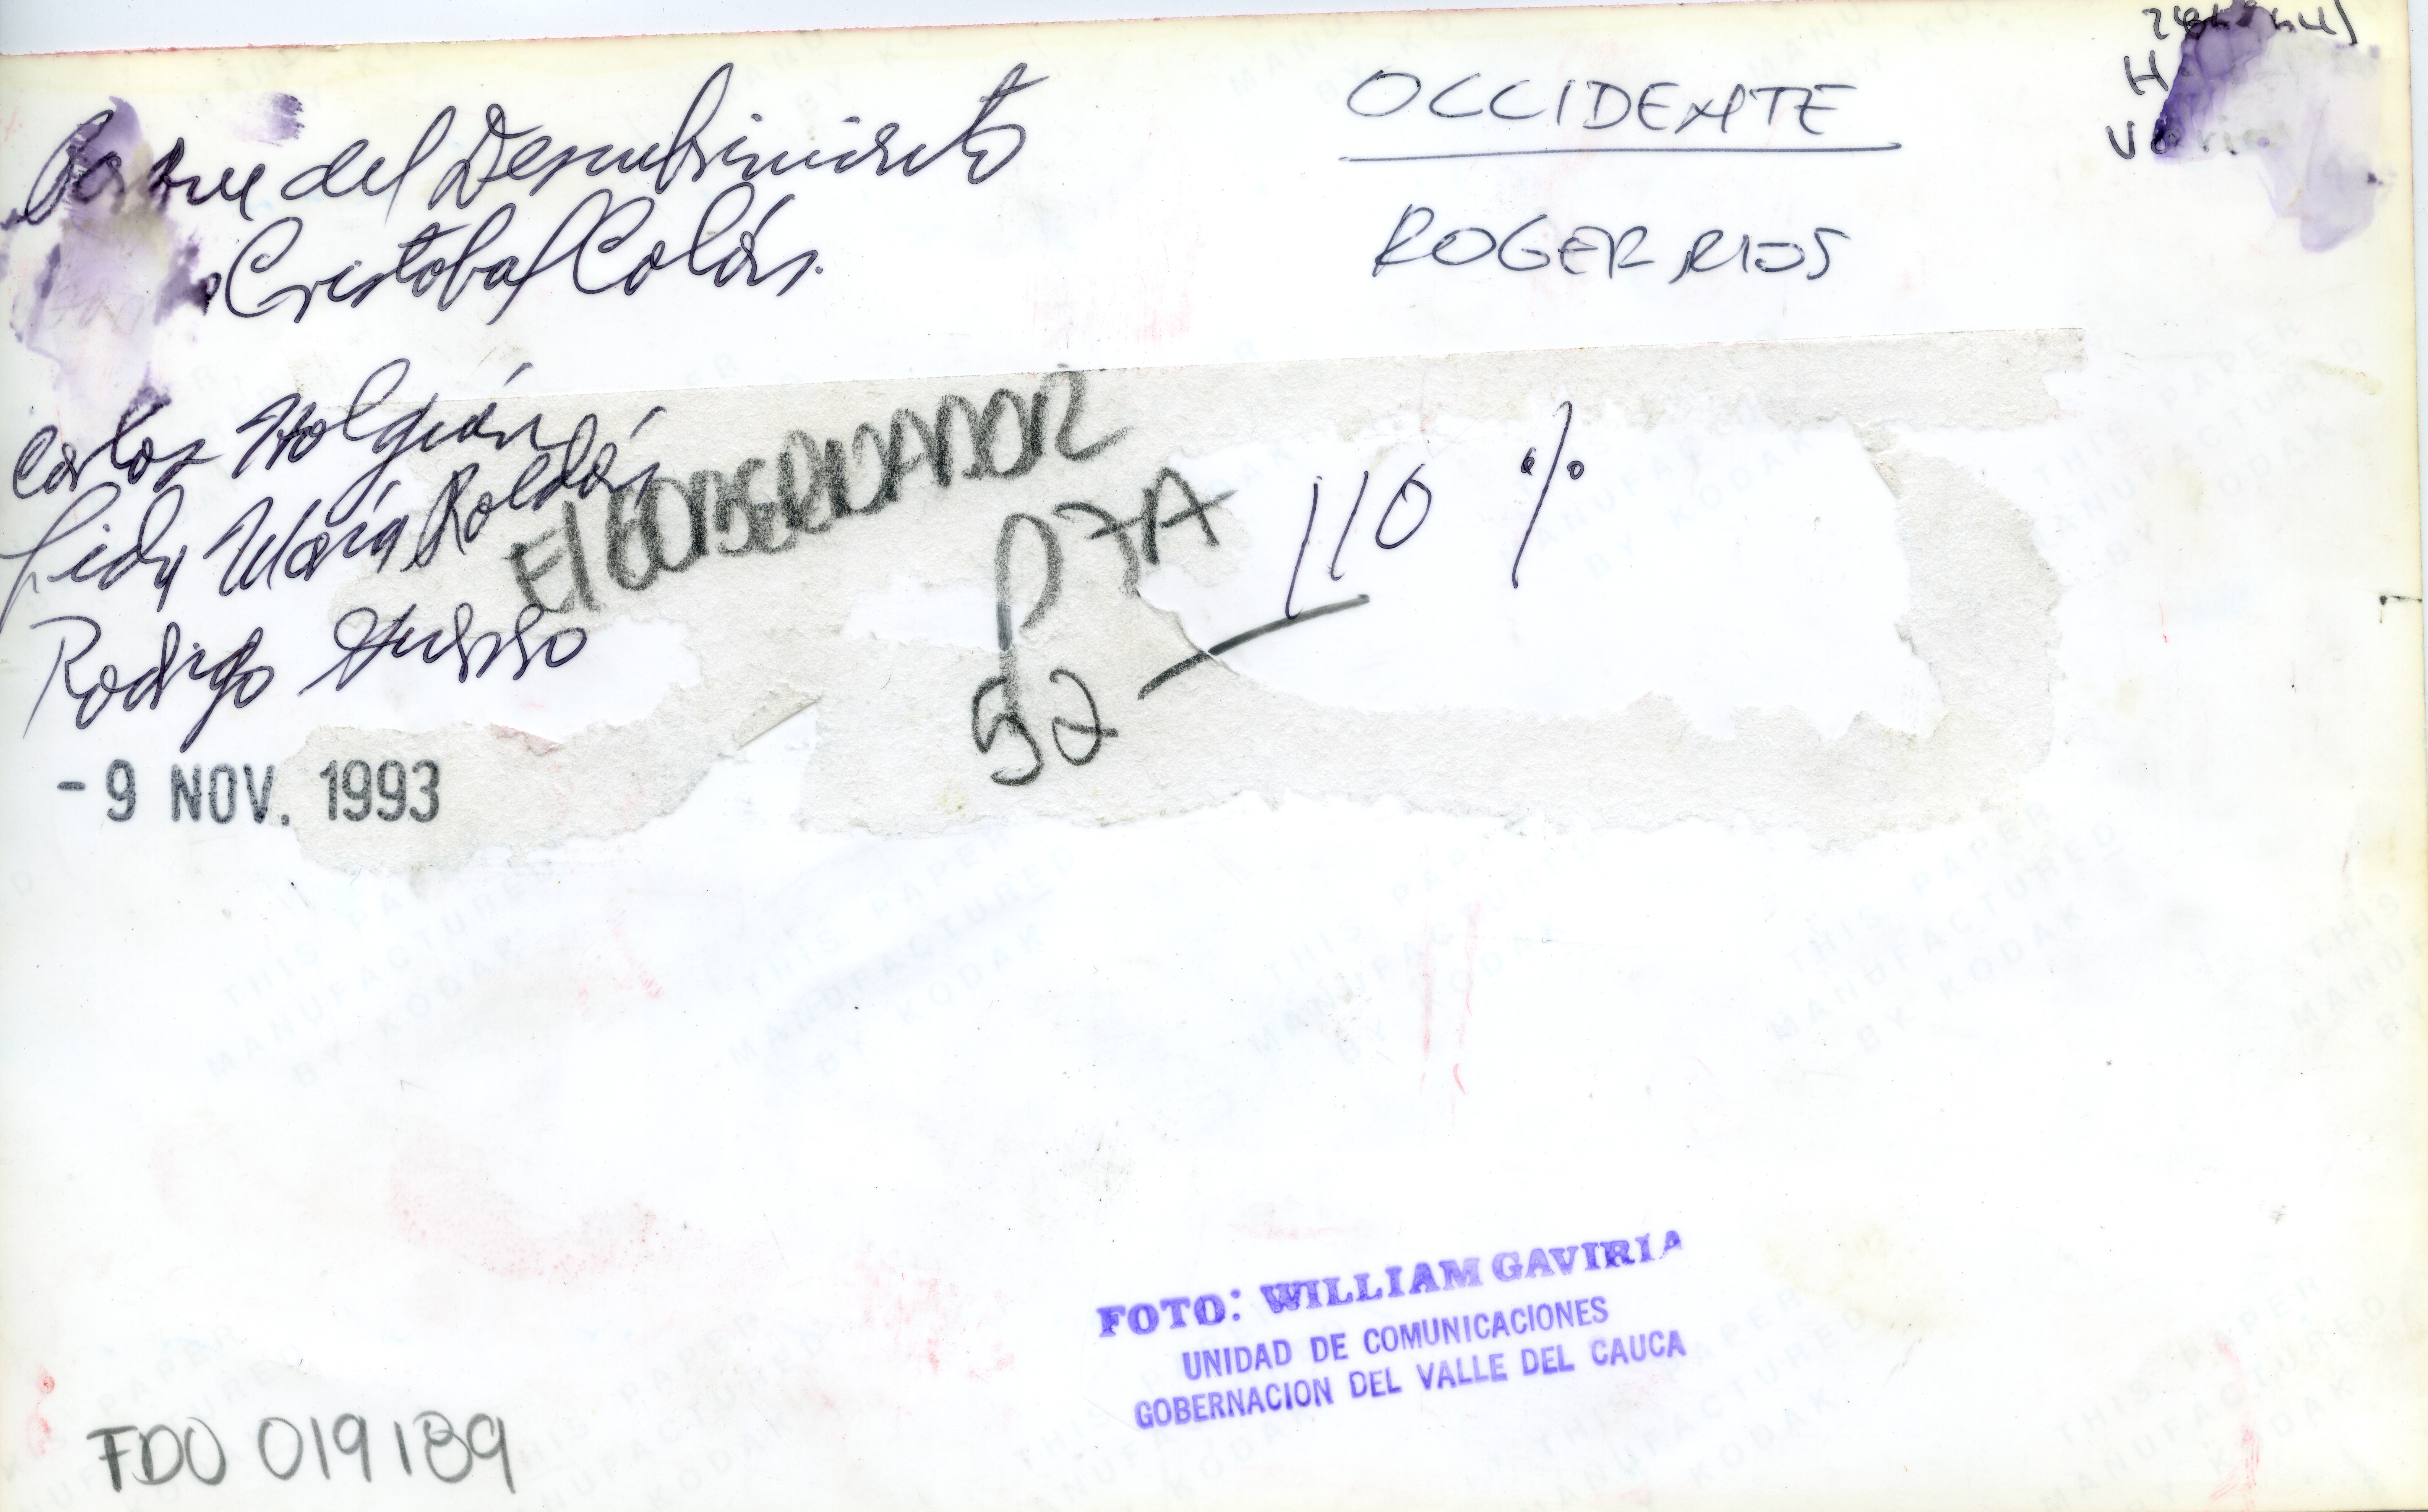 del Descubrimiento
Cristobal Colón.
OCCIDENTE
ROGER RIOS
Carlos Holguín
María Roldán
Rodrigo
El
P 7A
110 %
52
- 9 NOV. 1993
FOTO: WILLIAM GAVIRIA
UNIDAD DE COMUNICACIONES
GOBERNACION DEL VALLE DEL CAUCA
FDO 019189
THIS PAPER
MANUFACTURED
BY KODAK